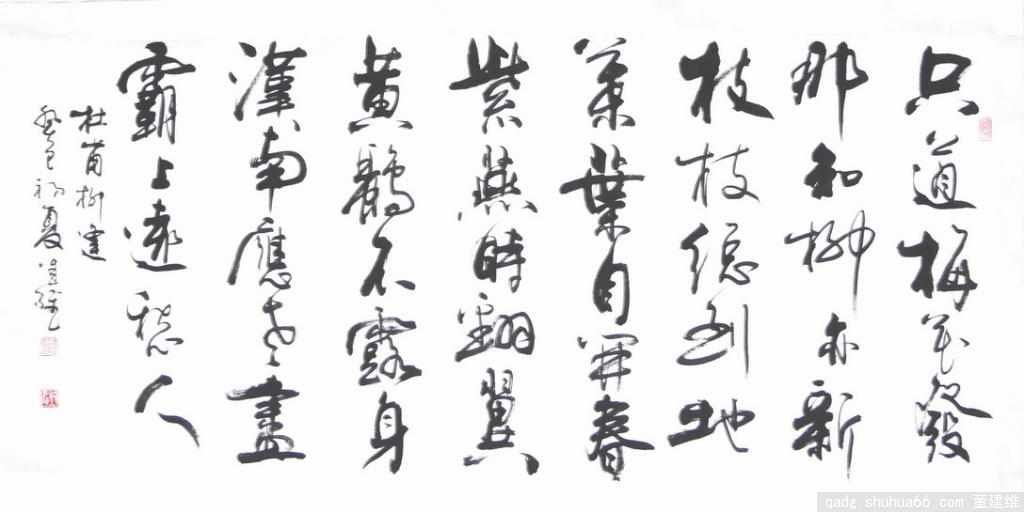 只道梅花發
那知柳亦新
枝枝總到地
葉葉自開春
紫燕時翻翼
黃鸝不露身
漢南應老盡
霸上遠愁人
杜甫柳邊
癸巳初夏建維
qadg.shuhua66.com 董建维